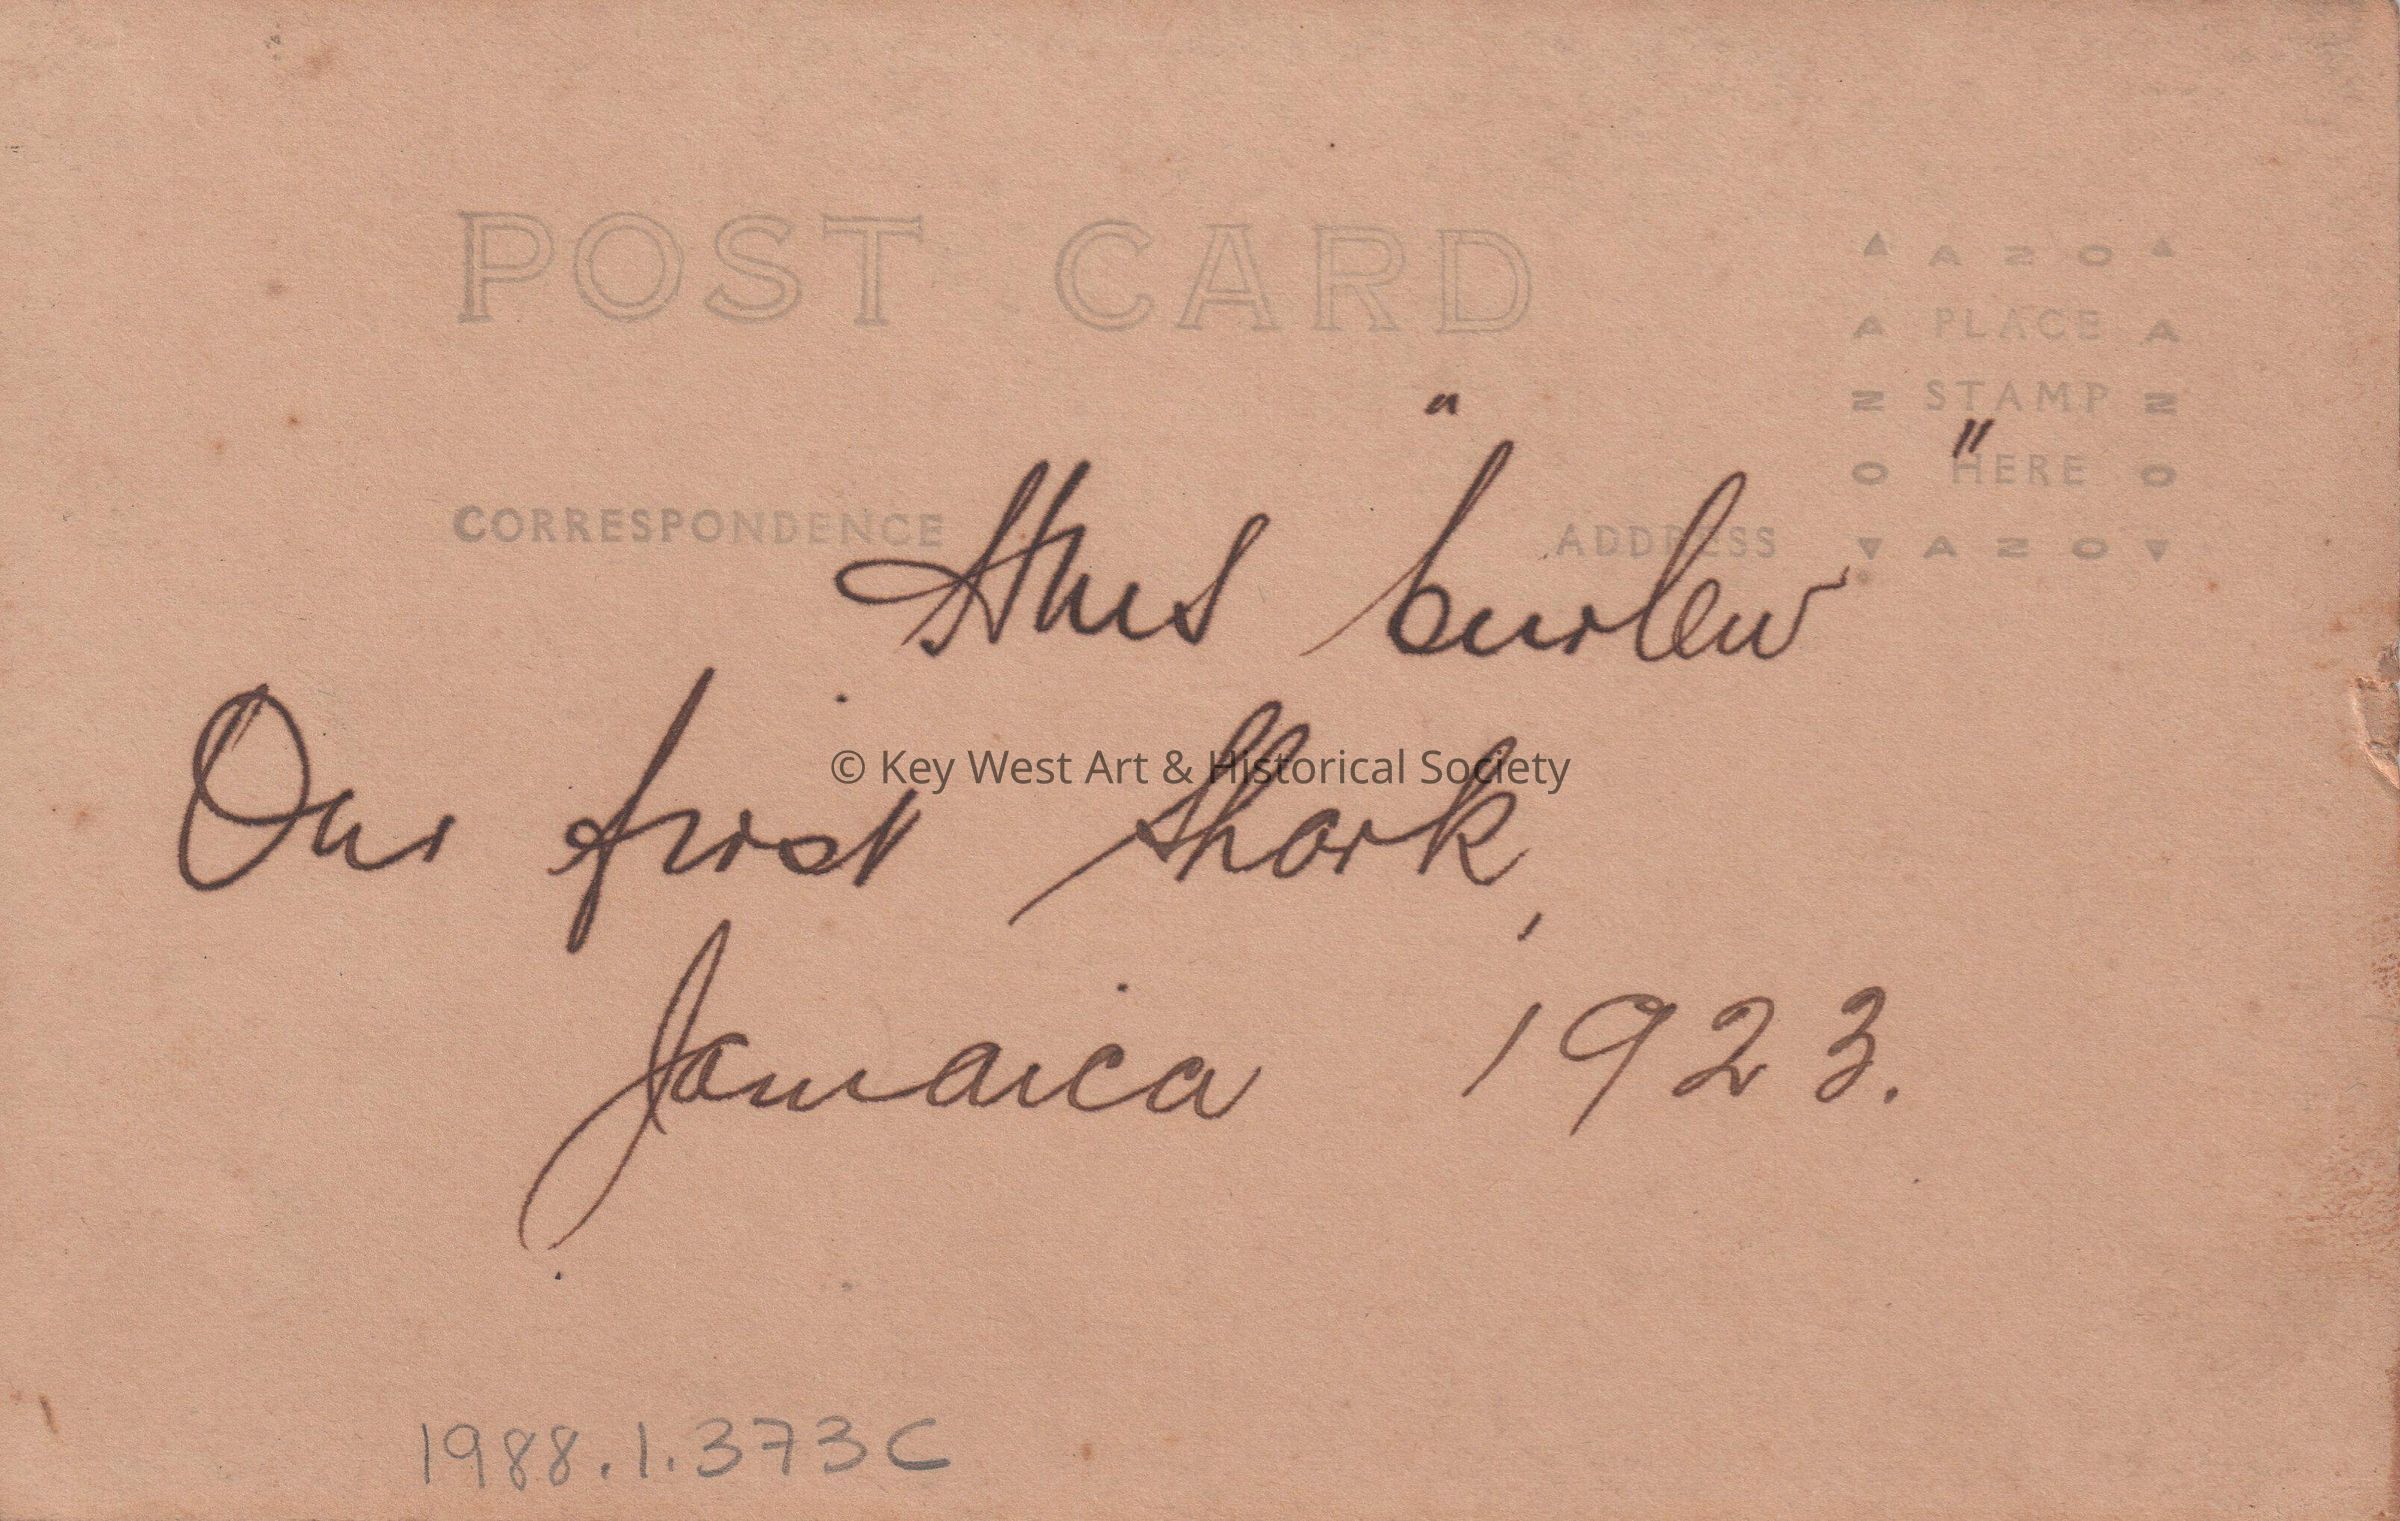 POST CARD
▲ AZO ▲
AZO PLACE STAMP HERE AZO
▼ AZO ▼
CORRESPONDENCE
ADDRESS
HMS "Curlew"
Our first Shark,
Jamaica 1923.
© Key West Art & Historical Society
1988.1.373C